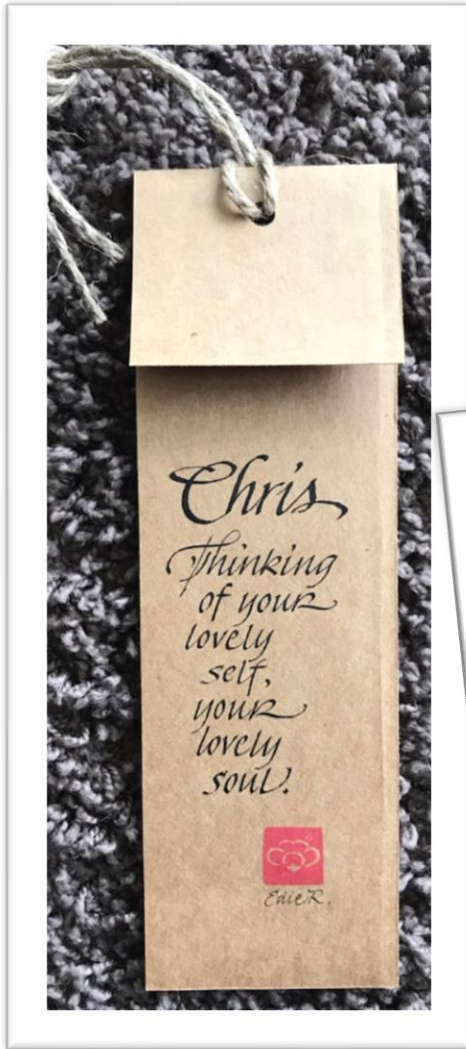 Chris
Thinking
of your
lovely
self,
your
lovely
soul.
Edie R.